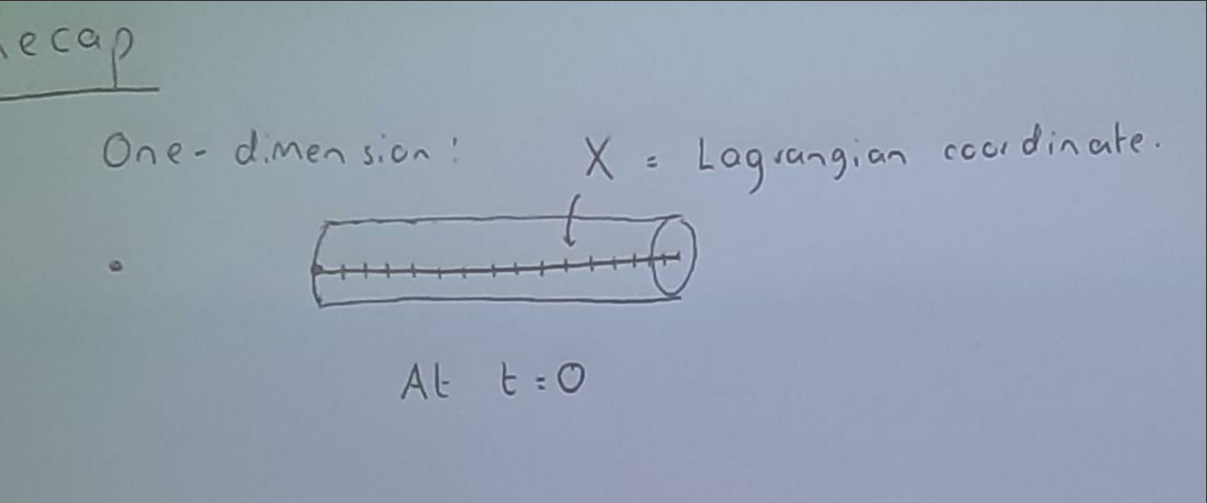 ecap
One-dimension: X = Lagrangian coordinate.
At t=0